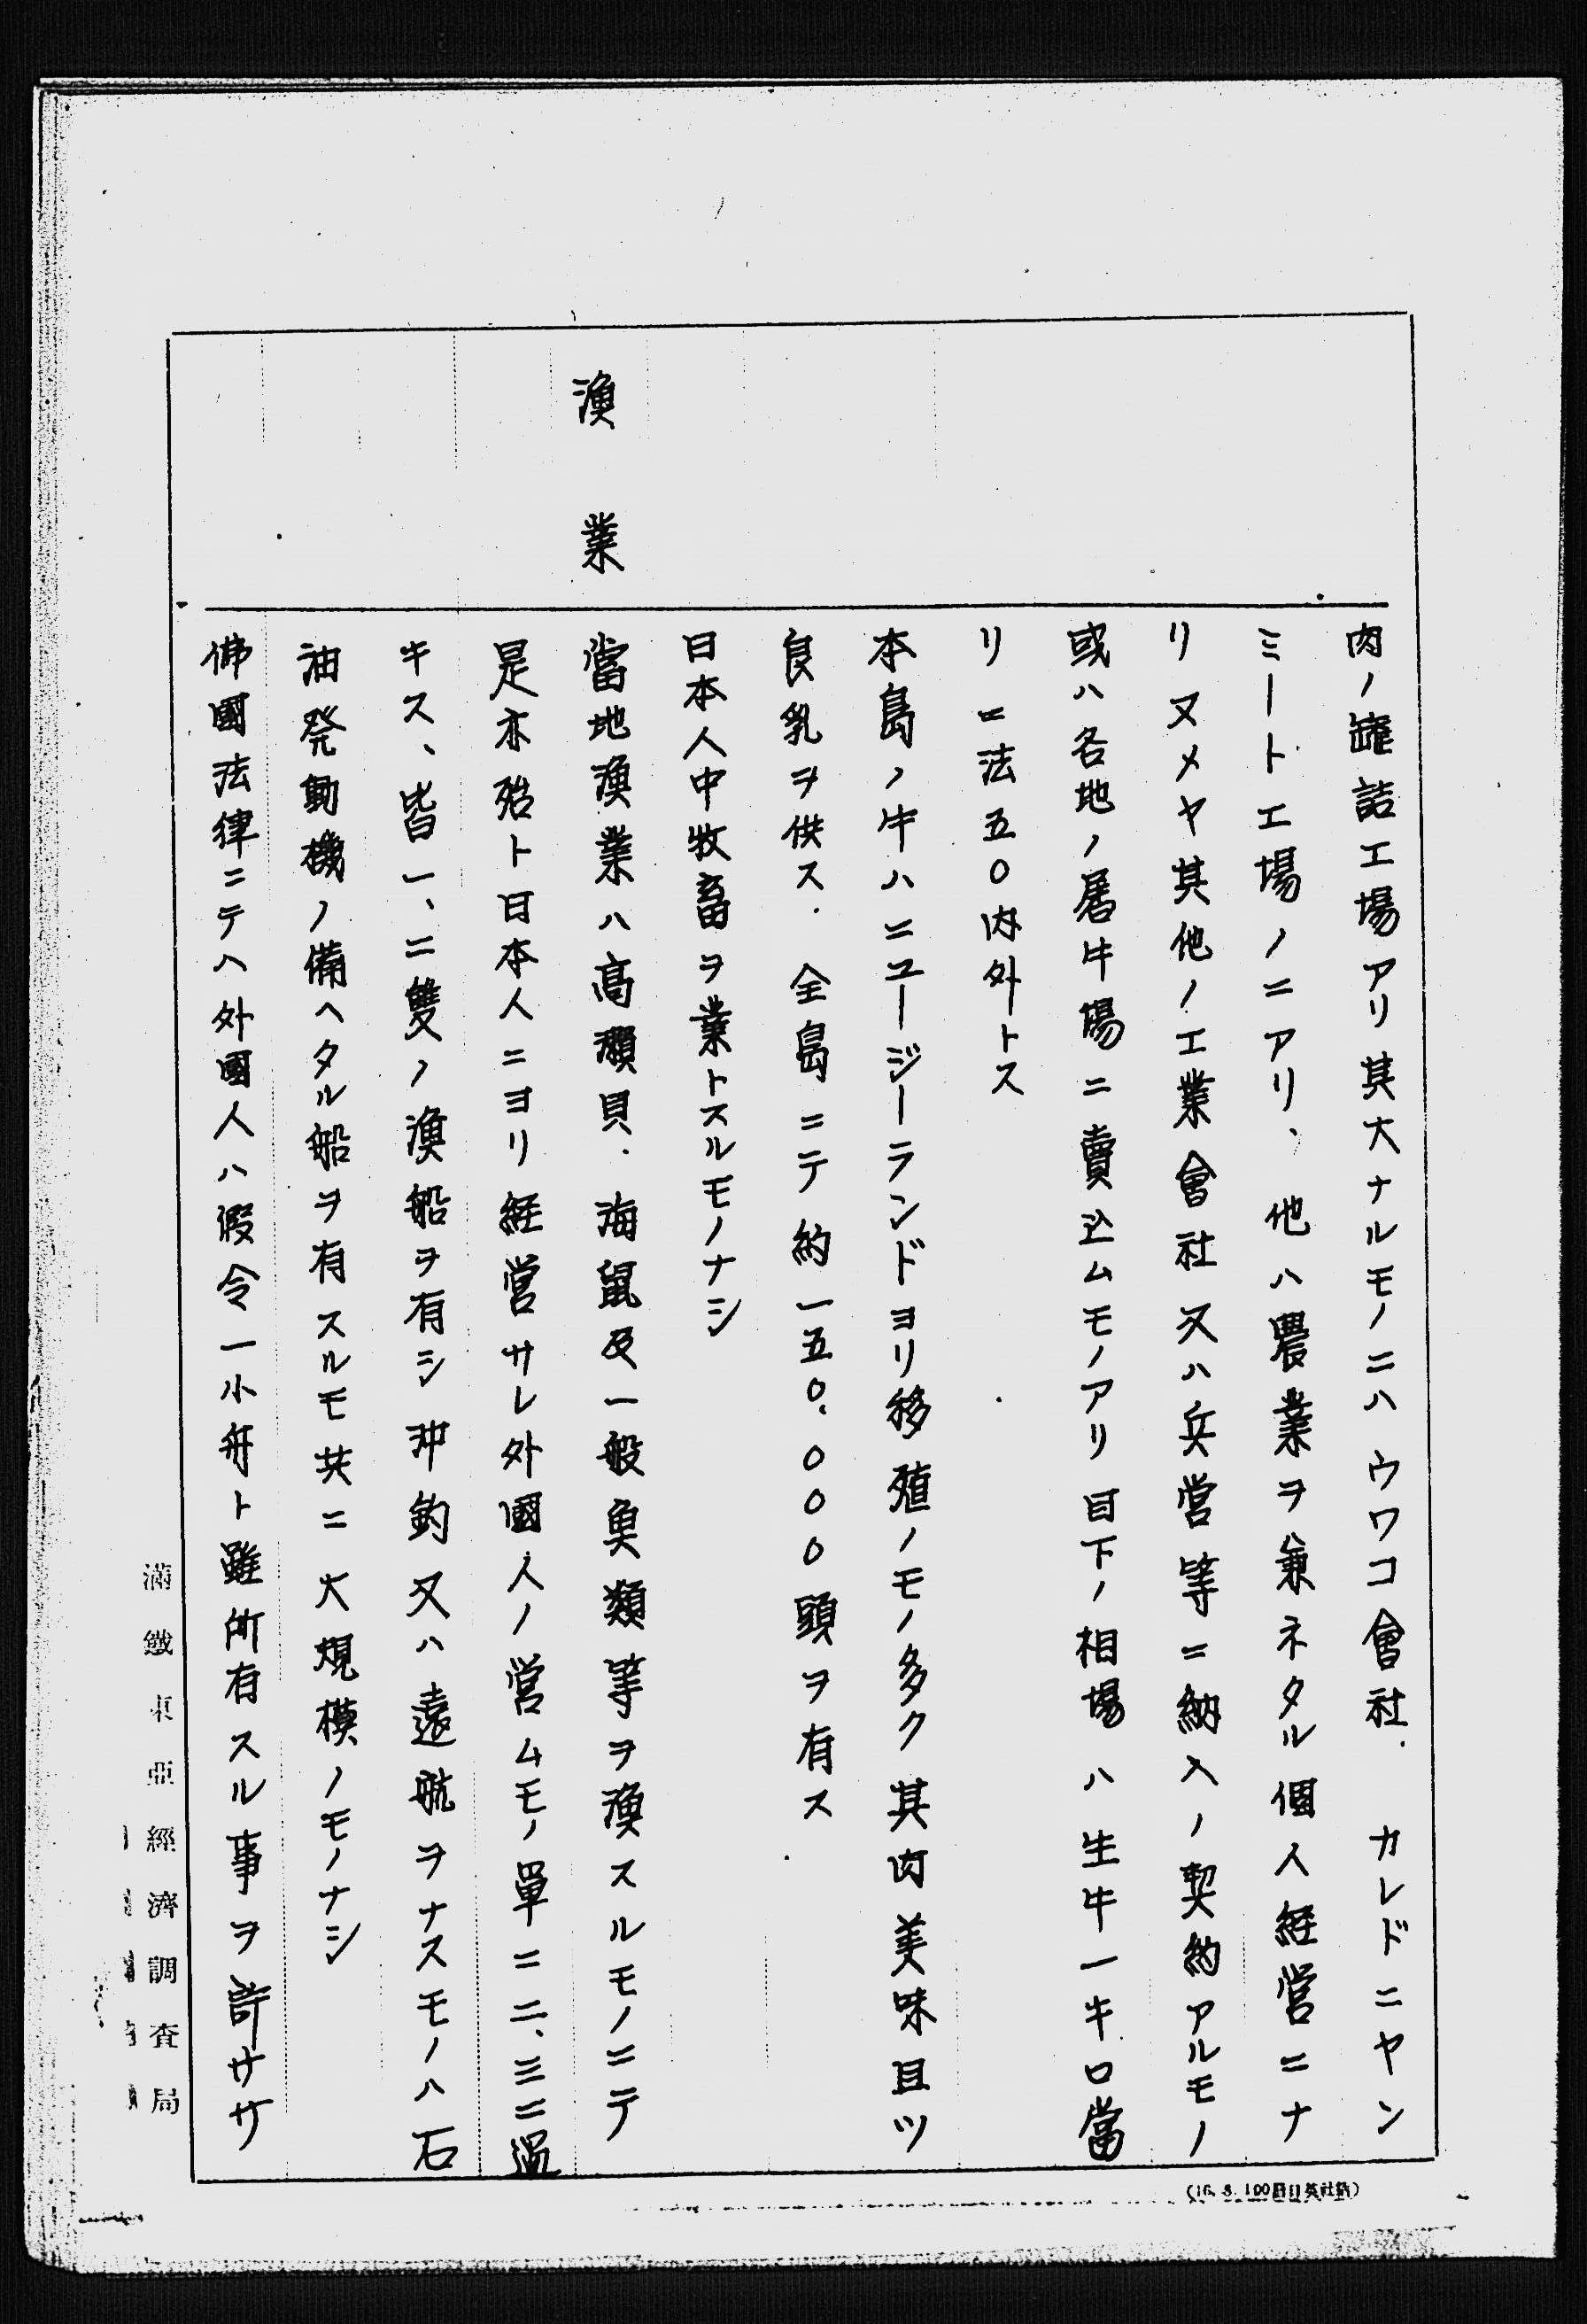 肉ノ罐詰工場アリ其大ナルモノニハウワコ會社．カレドニヤン
ミート工場ノニアリ、他ハ農業ヲ兼ネタル個人経営ニナ
リ又メヤ其他ノ工業會社又ハ兵営等ニ納入ノ契約アルモノ
或ハ各地ノ屠牛場ニ賣込ムモノアリ目下ノ相場ハ生牛一キロ當
リニ法五〇内外トス
本島ノ牛ハニユージーランドヨリ移殖ノモノ多ク其肉美味且ツ
良乳ヲ供ス．全島ニテ約一五〇、〇〇〇頭ヲ有ス
日本人中牧畜ヲ業トスルモノナシ
漁業
當地漁業ハ高瀬貝．海鼠及一般魚類等ヲ漁スルモノニテ
是亦殆ト日本人ニヨリ経営サレ外國人ノ営ムモノ單ニ二、三ニ過
キス、皆一、二雙ノ漁船ヲ有シ沖釣又ハ遠航ヲナスモノハ石
油発動機ノ備ヘタル船ヲ有スルモ共ニ大規模ノモノナシ
佛國法律ニテハ外國人ハ假令一小舟ト雖所有スル事ヲ許ササ
滿鐵東亞經濟調査局